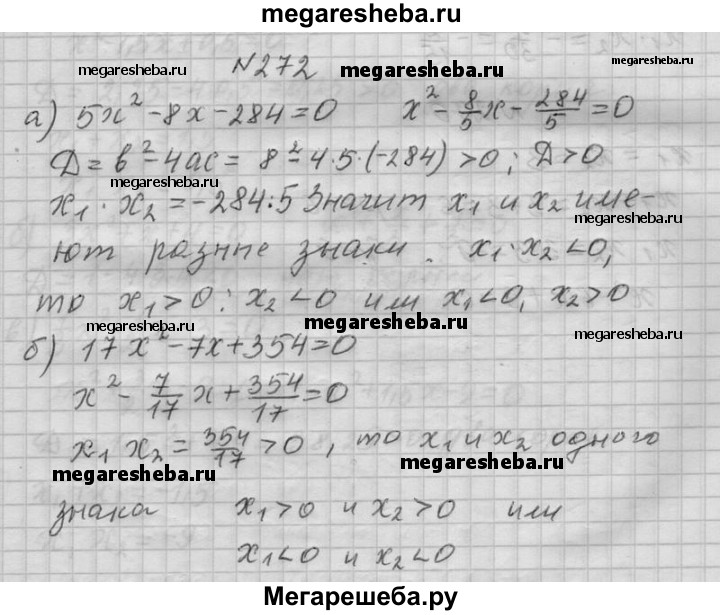 megaresheba.ru
N272
megaresheba.ru megaresheba.ru megaresheba.ru
а) 5x² - 8x - 284 = 0 x² - 8/5 x - 284/5 = 0
D = b² - 4ac = 8² - 4·5·(-284) > 0; D > 0
megaresheba.ru megaresheba.ru
x₁ · x₂ = -284:5 Значит x₁ и x₂ име-
megaresheba.ru
ют разные знаки. x₁·x₂ < 0,
megaresheba.ru megaresheba.ru
то x₁ > 0; x₂ < 0 или x₁ < 0, x₂ > 0
megaresheba.ru megaresheba.ru megaresheba.ru
б) 17x² - 7x + 354 = 0
x² - 7/17 x + 354/17 = 0
x₁ x₂ = 354/17 > 0, то x₁ и x₂ одного
megaresheba.ru megaresheba.ru
знака x₁ > 0 и x₂ > 0 или
x₁ < 0 и x₂ < 0
Мегарешеба.ру